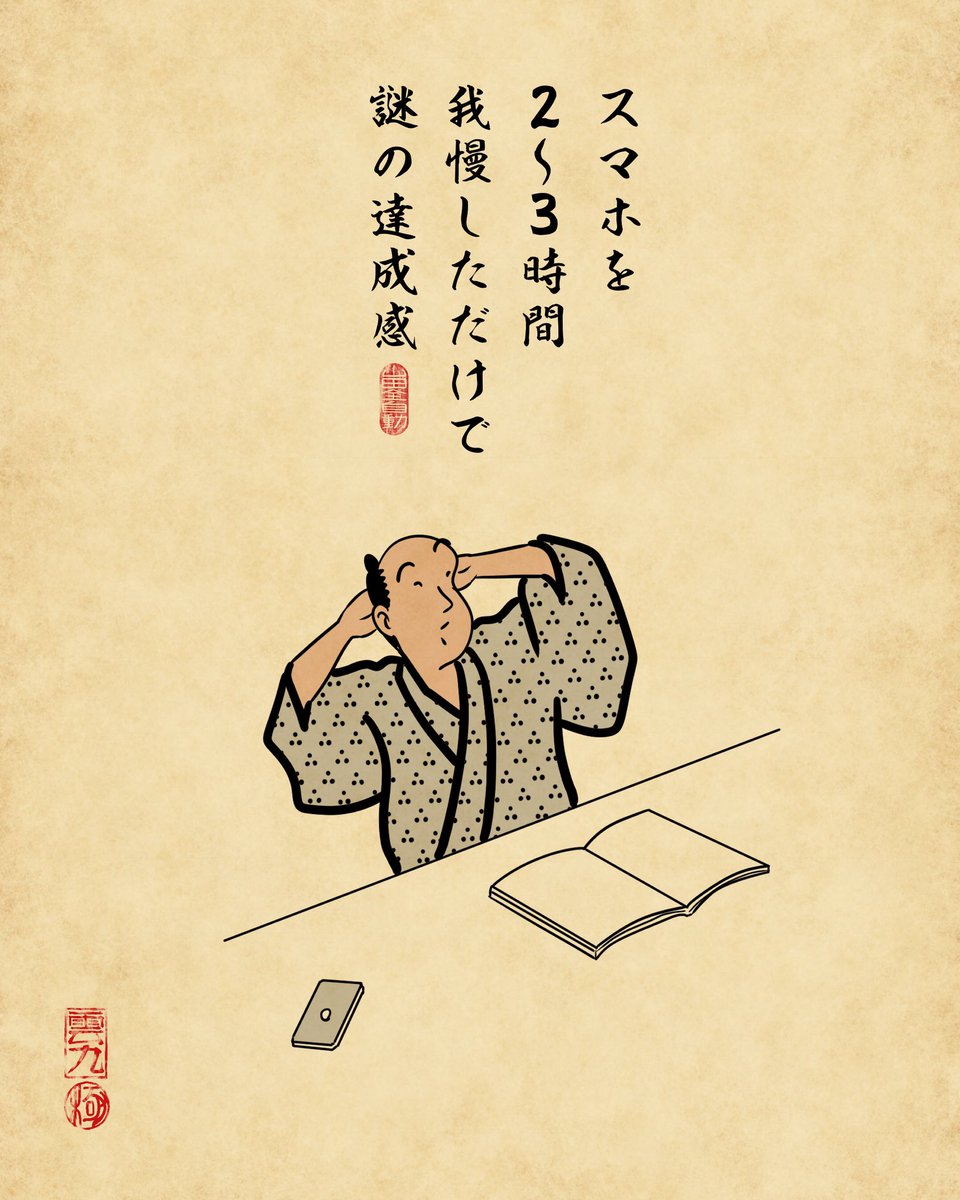 スマホを
2〜3時間
我慢しただけで
謎の達成感